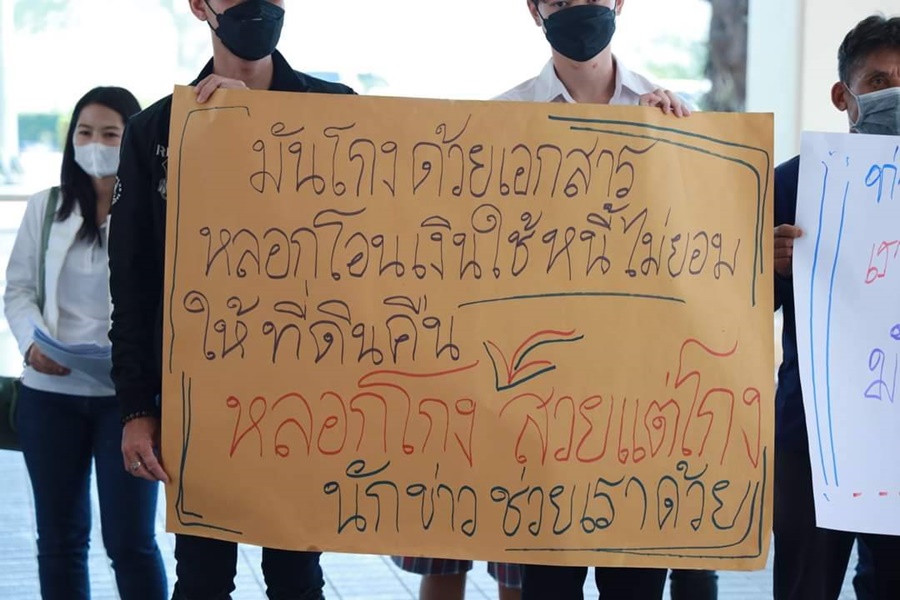 มันโกงด้วยเอกสาร
หลอกโอนเงินใช้หนี้ไม่ยอม
ให้ที่ดินคืน
หลอกโกง สวยแต่โกง
นักข่าวช่วยเราด้วย